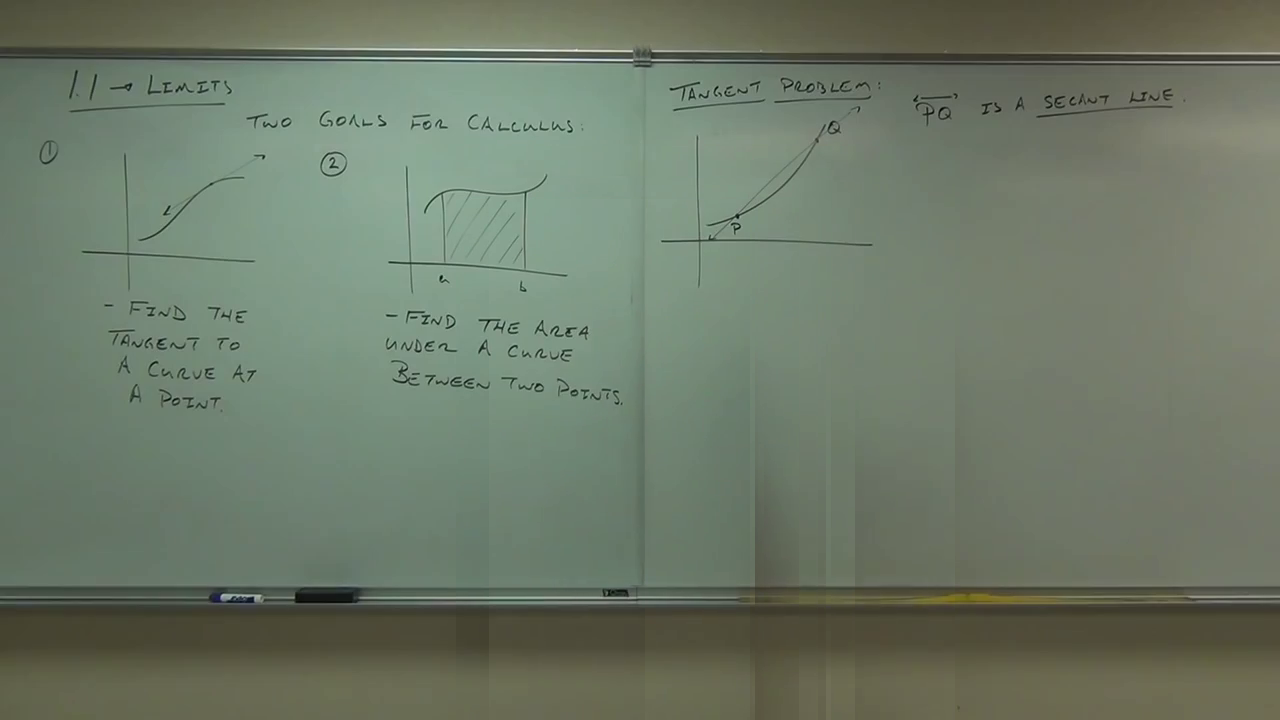 1.1 → LIMITS
TWO GOALS FOR CALCULUS:
①
②
a
b
- FIND THE
TANGENT TO
A CURVE AT
A POINT.
- FIND THE AREA
UNDER A CURVE
BETWEEN TWO POINTS.
TANGENT PROBLEM:
Q
P
PQ IS A SECANT LINE.
EXPO